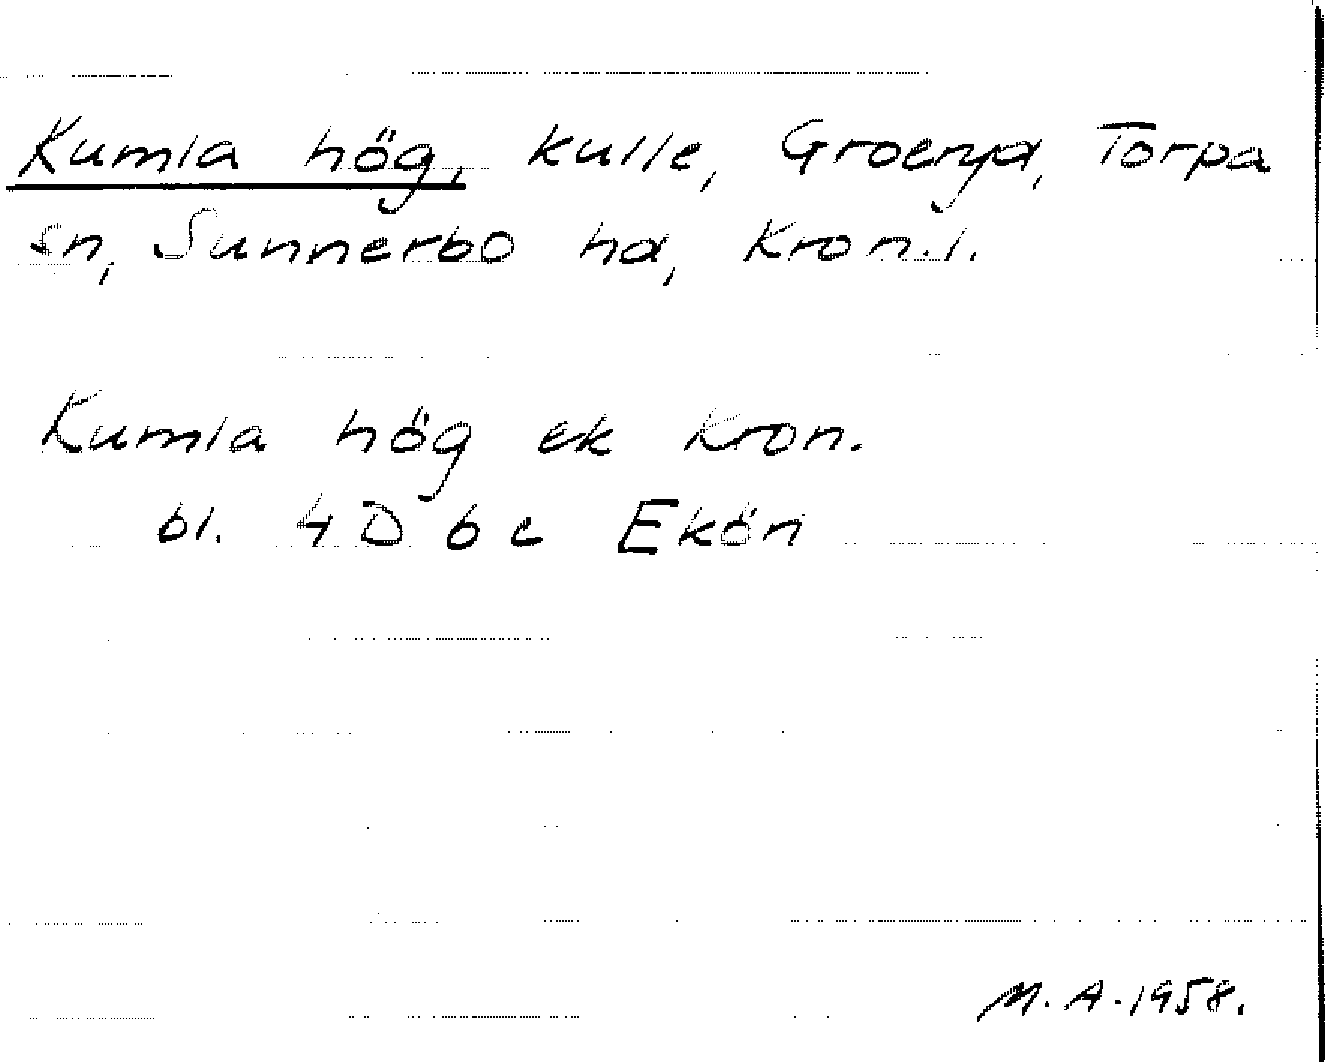 Kumla hög, kulle, Groeryd, Torpa
sn, Sunnerbo hd, Kron.l.
Kumla hög ek Kron.
bl. 4 D b c Ekön
M. A. 1958.